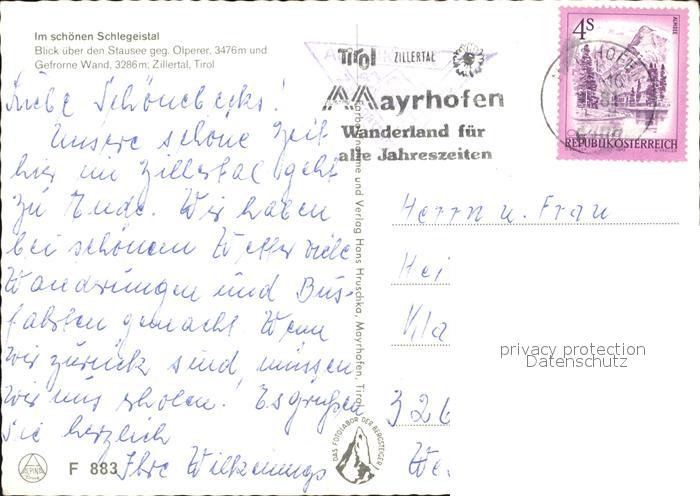 Im schönen Schlegeistal
Blick über den Stausee geg. Olperer, 3476m und
Gefrorne Wand, 3286m; Zillertal, Tirol
Liebe Schönebecks!
Unsere schöne Zeit
hier im Zillertal geht
zu Ende. Wir haben
bei schönem Wetter viele
Wanderungen und Bus-
fahrten gemacht. Wenn
wir zurück sind müssen
wir uns erholen! Es grüßen
Sie herzlich
Ihre Wilkenings
F 883
Tirol ZILLERTAL
Mayrhofen
Wanderland für
alle Jahreszeiten
4S
ALMSEE
REPUBLIK ÖSTERREICH
Farbaufnahme und Verlag Hans Hruschka, Mayrhofen, Tirol
DAS FOTOLABOR DER BERGSTEIGER
Herrn u. Frau
Hei
326
We
privacy protection
Datenschutz